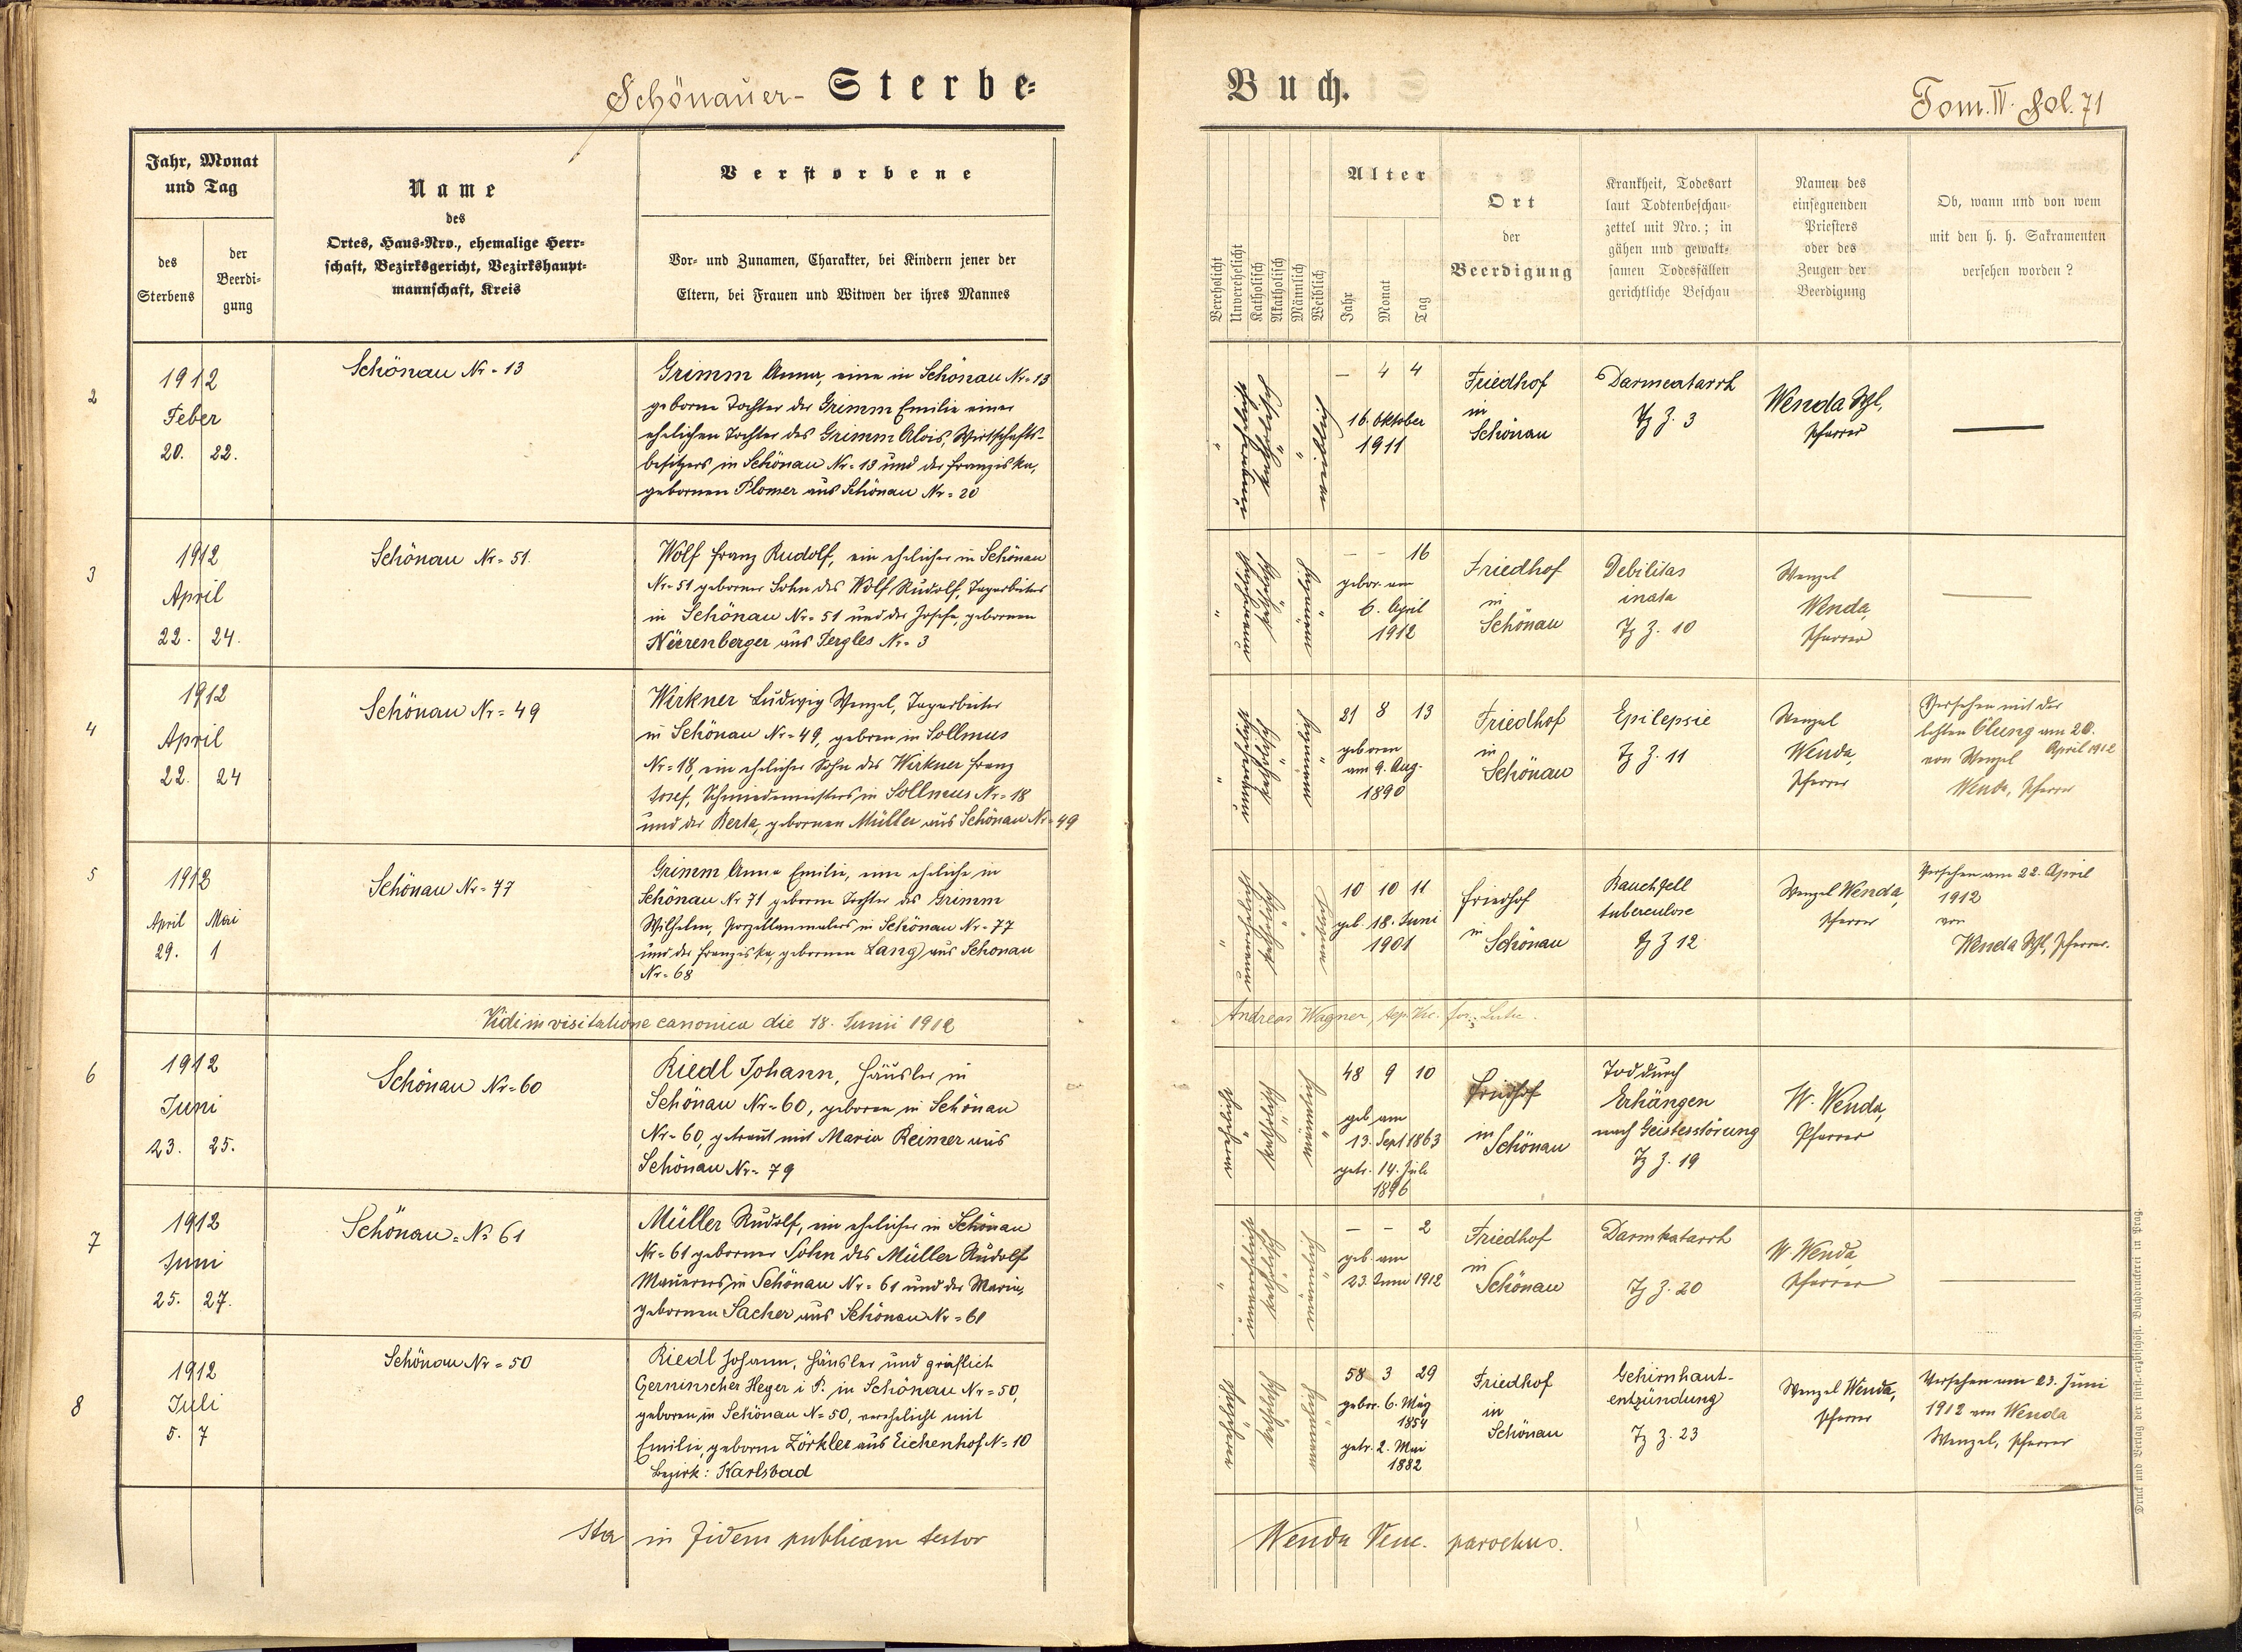 Schönauer- Sterbe-
Buch.
Tom. IV. Fol. 71
Jahr, Monat
und Tag
des
Sterbens
der
Beerdi-
gung
Name
des
Ortes, Haus-Nro., ehemalige Herr-
schaft, Bezirksgericht, Bezirkshaupt-
mannschaft, Kreis
Verstorbene
Vor- und Zunamen, Charakter, bei Kindern jener der
Eltern, bei Frauen und Witwen der ihres Mannes
Verehelicht
Unverehelicht
Katholisch
Akatholisch
Männlich
Weiblich
Alter
Jahr
Monat
Tag
Ort
der
Beerdigung
Krankheit, Todesart
laut Todtenbeschau-
zettel mit Nro.; in
gähen und gewalt-
samen Todesfällen
gerichtliche Beschau
Namen des
einsegnenden
Priesters
oder des
Zeugen der
Beerdigung
Ob, wann und von wem
mit den h. h. Sakramenten
versehen worden?
2
1912
Feber
20. 22.
Schönau Nr = 13
Grimm Anna, eine in Schönau Nr = 13
geborne Tochter der Grimm Emilie einer
ehelichen Tochter des Grimm Alois, Wirtschafts-
besitzers in Schönau Nr = 13 und der Franziska,
gebornen Plomer aus Schönau Nr = 20
" unverehelicht katholisch " " weiblich
— 4 4
16. Oktober
1911
Friedhof
in
Schönau
Darmcatarrh
Tz Z. 3
Wenda Wzl,
Pfarrer
—
3
1912
April
22. 24.
Schönau Nr = 51.
Wolf Franz Rudolf, ein ehelicher in Schönau
Nr = 51 geborner Sohn des Wolf Rudolf, Tagarbeiters
in Schönau Nr = 51 und der Josefa, gebornen
Nürrenberger aus Tergles Nr = 3
" unverehelicht katholisch " männlich "
— — 16
gebor. am
6. April
1912
Friedhof
in
Schönau
Debilitas
inata
Tz Z. 10
Wenzel
Wenda,
Pfarrer
—
4
1912
April
22. 24
Schönau Nr = 49
Wirkner Ludwig Wenzel, Tagarbeiter
in Schönau Nr = 49, geboren in Sollmus
Nr = 18, ein ehelicher Sohn des Wirkner Franz
Josef, Schmiedemeisters in Sollmus Nr = 18
und der Berta, gebornen Müller aus Schönau Nr = 49
" unverehelicht katholisch " männlich "
21 8 13
geboren
am 9. Aug.
1890
Friedhof
in
Schönau
Epilepsie
Tz Z. 11
Wenzel
Wenda,
Pfarrer
Versehen mit der
letzten Ölung am 20.
April 1912
von Wenzel
Wenda, Pfarrer
5
1912
April Mai
29. 1
Schönau Nr = 77
Grimm Anna Emilie, eine eheliche in
Schönau Nr 71 geborne Tochter des Grimm
Wilhelm, Porzellanmalers in Schönau Nr = 77
und der Franziska, gebornen Lang aus Schönau
Nr = 68
" unverehelicht katholisch " " weiblich
10 10 11
geb. 18. Juni
1901
Friedhof
in
Schönau
Bauchfell
tuberculose
Tz Z 12
Wenzel Wenda,
Pfarrer
Versehen am 22. April
1912
von
Wenda Wzl, Pfarrer.
Vidi in visitatione canonica die 18. Junii 1912
Andreas Wagner,
6
1912
Juni
23. 25.
Schönau Nr = 60
Riedl Johann, Häusler in
Schönau Nr = 60, geboren in Schönau
Nr = 60, getraut mit Maria Reimer aus
Schönau Nr = 79
verehelicht " katholisch " männlich "
48 9 10
geb. am
13. Sept 1863
getr. 14. Juli
1896
Friedhof
in
Schönau
Tod durch
Erhängen
nach Geistesstörung
Tz Z. 19
W. Wenda,
Pfarrer
7
1912
Juni
25. 27.
Schönau = No 61
Müller Rudolf, ein ehelicher in Schönau
Nr = 61 geborner Sohn des Müller Rudolf
Maurers in Schönau Nr = 61 und der Maria,
gebornen Sacher aus Schönau Nr = 61
" unverehelicht katholisch " männlich "
— — 2
geb. am
23. Juni 1912
Friedhof
in
Schönau
Darmkatarrh
Tz Z. 20
W Wenda,
Pfarrer
—
8
1912
Juli
5. 7
Schönau Nr = 50
Riedl Johann, Häusler und gräflich
Czerninscher Heger i. P. in Schönau Nr = 50,
geboren in Schönau N = 50, verehelicht mit
Emilie, geborne Zörkler aus Eichenhof N = 10
Bezirk: Karlsbad
verehelicht " katholisch " männlich "
58 3 29
gebor. 6. März
1854
getr. 2. Mai
1882
Friedhof
in
Schönau
Gehirnhaut-
entzündung
Tz Z. 23
Wenzel Wenda,
Pfarrer
Versehen am 23. Juni
1912 von Wenda
Wenzel, Pfarrer
Ita in fidem publicam testor
Wenda Venc. parochus.
Druck und Verlag der fürst-erzbischöfl. Buchdruckerei in Prag.